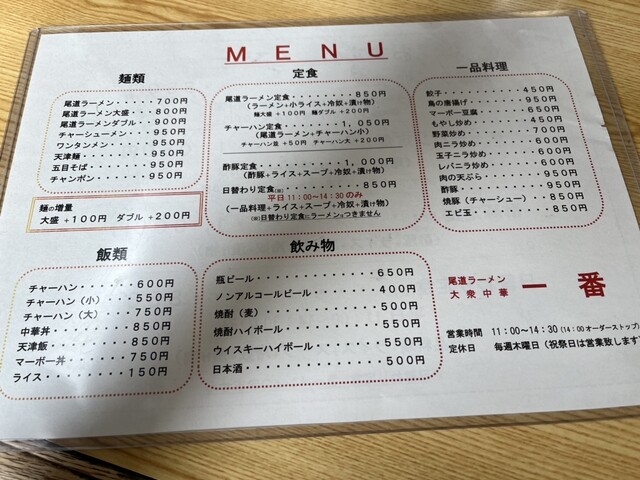 MENU
麺類
尾道ラーメン・・・・・700円
尾道ラーメン大盛・・・800円
尾道ラーメンダブル・・900円
チャーシューメン・・・950円
ワンタンメン・・・・・950円
天津麺・・・・・・・・950円
五目そば・・・・・・・950円
チャンポン・・・・・・950円
麺の増量
大盛 +100円 ダブル +200円
飯類
チャーハン・・・・・600円
チャーハン（小）・・550円
チャーハン（大）・・750円
中華丼・・・・・・・950円
天津飯・・・・・・・850円
マーボー丼・・・・・750円
ライス・・・・・・・150円
定食
尾道ラーメン定食・・・・・・・・850円
（ラーメン+小ライス+冷奴+漬け物）
麺大盛+100円 麺ダブル+200円
チャーハン定食・・・・・・・1,050円
（尾道ラーメン+チャーハン小）
チャーハン並+50円 チャーハン大+200円
酢豚定食・・・・・・・・・・1,000円
（酢豚+ライス+スープ+冷奴+漬け物）
日替わり定食㈱・・・・・・・・・850円
平日11:00～14:30のみ
（一品料理+ライス+スープ+冷奴+漬け物）
日替わり定食にラーメンはつきません
飲み物
瓶ビール・・・・・・・・・・・650円
ノンアルコールビール・・・・・400円
焼酎（麦）・・・・・・・・・・500円
焼酎ハイボール・・・・・・・・550円
ウイスキーハイボール・・・・・550円
日本酒・・・・・・・・・・・・500円
一品料理
餃子・・・・・・・・・450円
鳥の唐揚げ・・・・・・950円
マーボー豆腐・・・・・650円
もやし炒め・・・・・・450円
野菜炒め・・・・・・・700円
肉ニラ炒め・・・・・・950円
玉子ニラ炒め・・・・・950円
レバニラ炒め・・・・・950円
肉の天ぷら・・・・・・950円
酢豚・・・・・・・・・950円
焼豚（チャーシュー）・950円
エビ玉・・・・・・・・950円
尾道ラーメン
大衆中華 一番
営業時間 11:00～14:30（14:00オーダーストップ）
定休日 毎週木曜日（祝祭日は営業致します